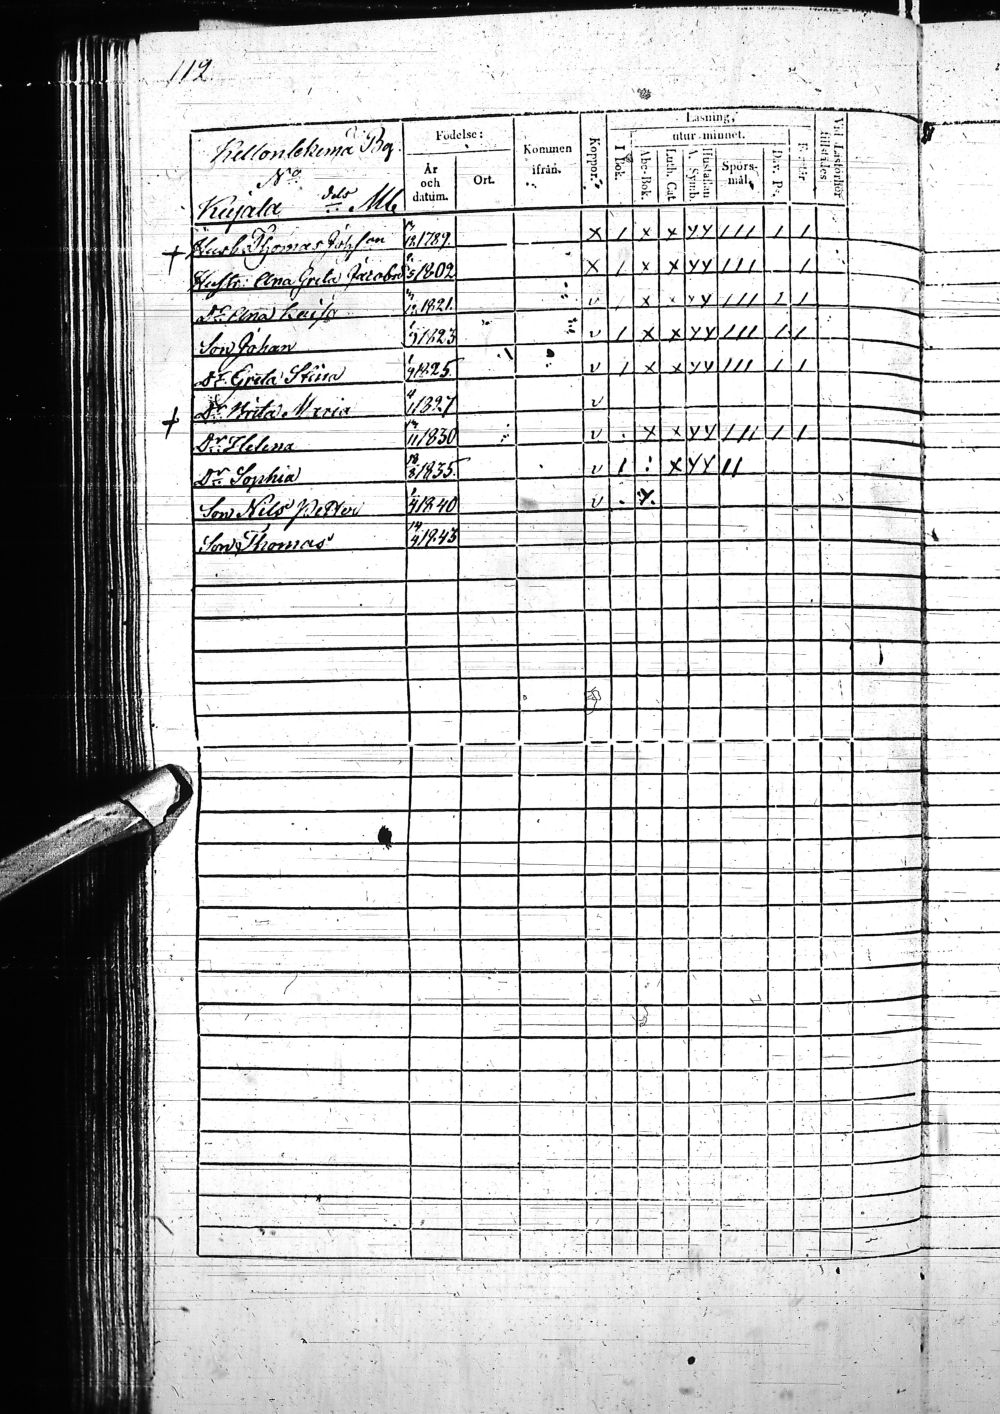 112.
Kellonlekema By.
No.
Kujala dels Mtl
Födelse:
År och datum.
Ort.
Kommen ifrån.
Koppor.
Läsning,
I bok.
utur minnet.
Abc-Bok.
Luth. Cat
Hustaflan A. Symb.
Spörs-mål.
Dav. Ps.
Förstår
Vid Läsförhör tillstädes
+ Husb. Thomas Johsson 1789. x / x x yy /// / /
Hustr: Ana Greta Jacobsd 1802 x / x x yy /// /
Dr. Ana Kaisa 1821. v / x x yy /// / /
Son Johan 1823 v / x x yy /// / /
Dr. Greta Stina 1825. v / x x yy /// / /
+ Dr. Brita Maria 1827 v
Dr. Helena 1830 v . x x yy /// / /
Dr. Sophia 18/8 1835. v / : x yy //
Son Nils Petter 1840 v .
Son Thomas 14/4 1843